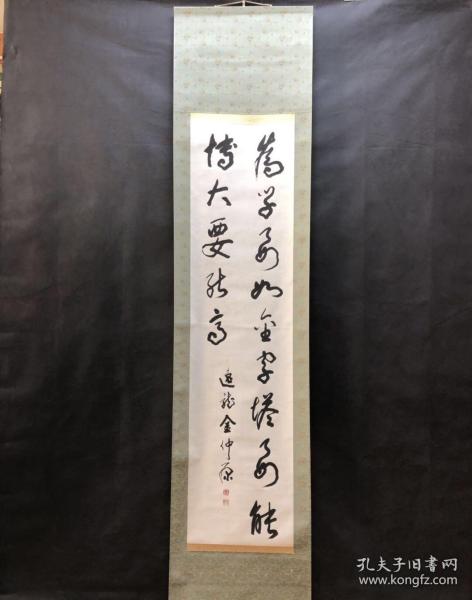 為学要如金字塔要能
博大要能高
金仲原
孔夫子旧书网
www.kongfz.com